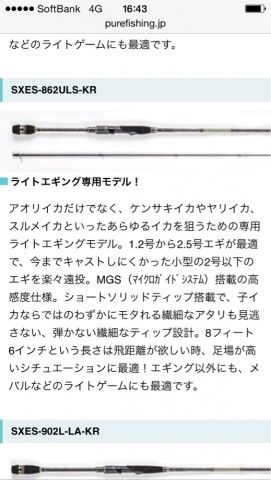 SoftBank 4G 16:43
purefishing.jp
などのライトゲームにも最適です。
SXES-862ULS-KR
ライトエギング専用モデル！
アオリイカだけでなく、ケンサキイカやヤリイカ、
スルメイカといったあらゆるイカを狙うための専用
ライトエギングモデル。1.2号から2.5号エギが最適
で、今までキャストしにくかった小型の2号以下の
エギを楽々遠投。MGS（ﾏｲｸﾛｶﾞｲﾄﾞｼｽﾃﾑ）搭載の高
感度仕様。ショートソリッドティップ搭載で、子イ
カならではのわずかにモタれる繊細なアタリも見逃
さない、弾かない繊細なティップ設計。8フィート
6インチという長さは飛距離が欲しい時、足場が高
いシチュエーションに最適！エギング以外にも、メ
バルなどのライトゲームにも最適です。
SXES-902L-LA-KR